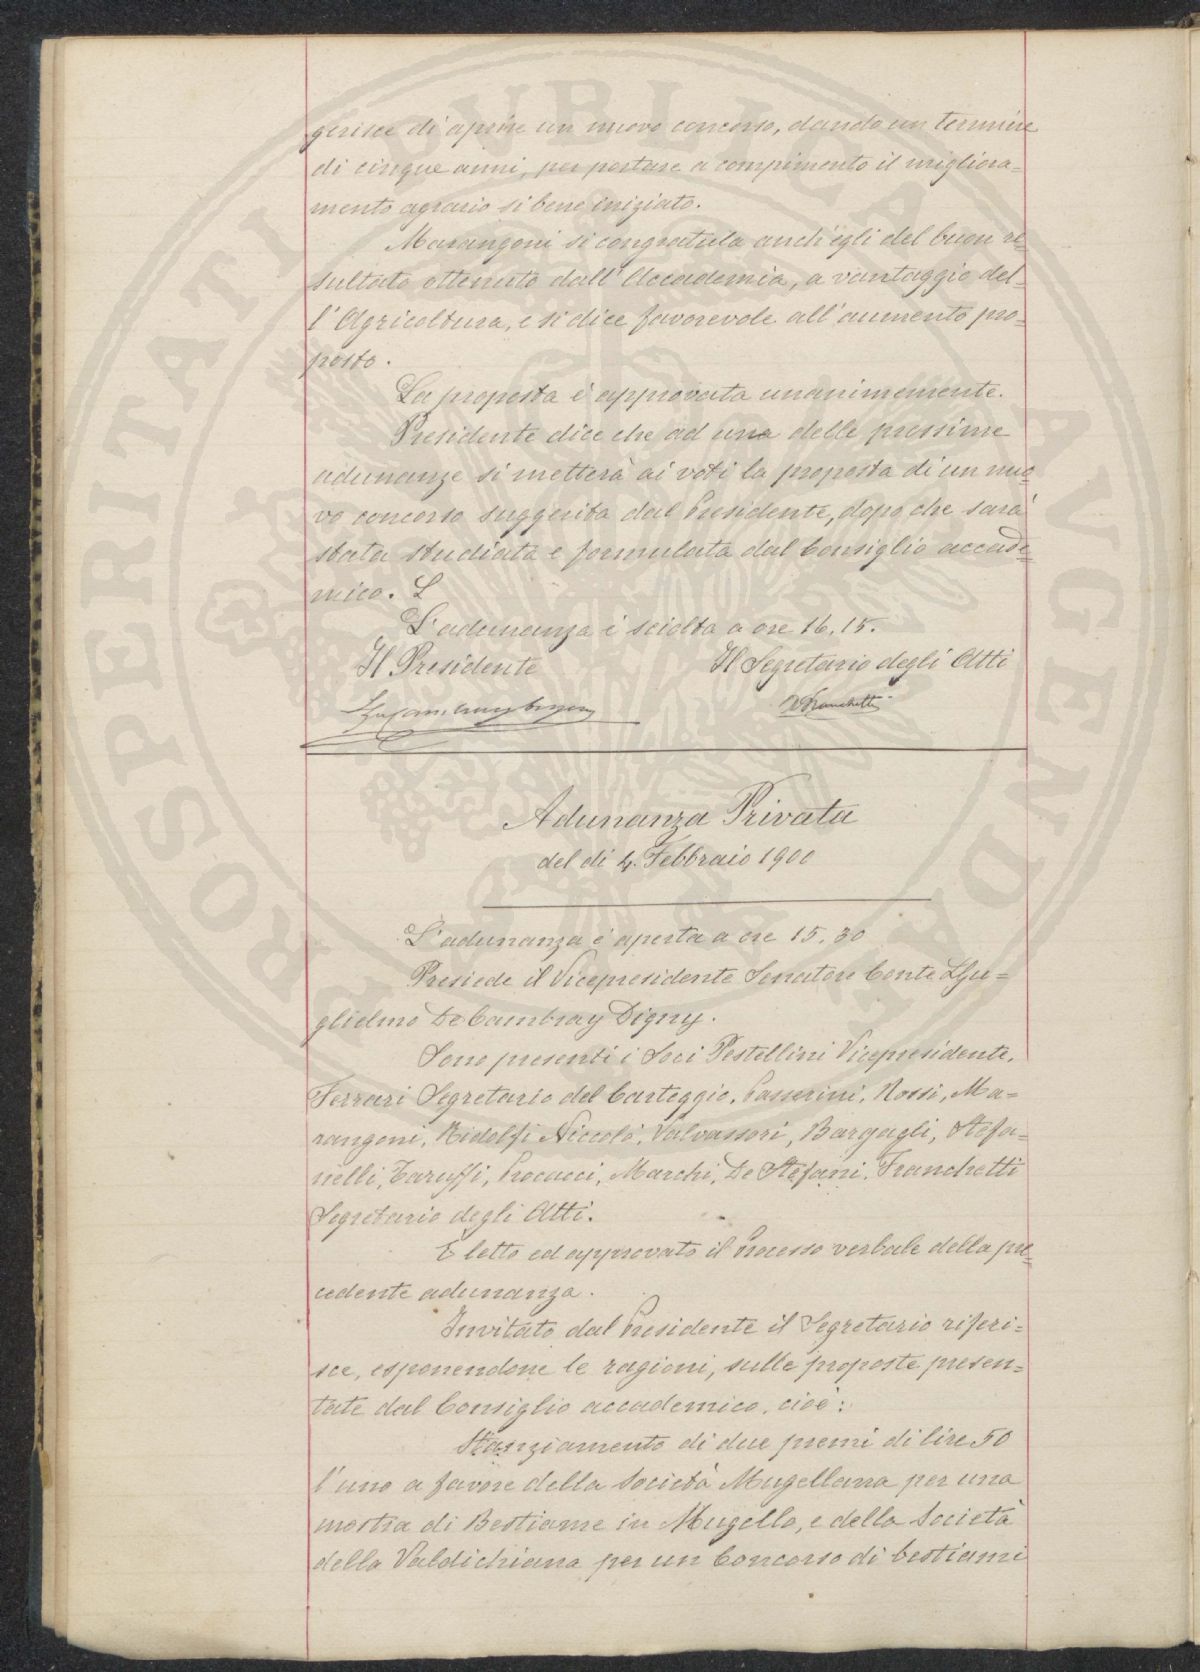 gerisce di aprire un nuovo concorso, dando un termine
di cinque anni, per portare a compimento il migliora=
mento agrario si bene iniziato.
Marangoni si congratula anch'egli del buon re=
sultato ottenuto dall'Accademia, a vantaggio del=
l'Agricoltura, e si dice favorevole all'aumento pro=
posto.
La proposta è approvata unanimemente.
Presidente dice che ad una delle prossime
adunanze si metterà ai voti la proposta di un nuo=
vo concorso suggerita dal Presidente, dopo che sarà
stata studiata e formulata dal Consiglio accade=
mico. L
L'adunanza è sciolta a ore 16,15.
Il Presidente Il Segretario degli Atti
Franchetti
Adunanza Privata
del dì 4. Febbraio 1900
L'adunanza è aperta a ore 15.30
Presiede il Vicepresidente Senatore Conte Gu=
glielmo De Cambray Digny.
Sono presenti i Soci Pestellini Vicepresidente,
Ferrari Segretario del Carteggio, Passerini, Rossi, Ma=
rangoni, Ridolfi Niccolò, Valvassori, Bargagli, Stefa=
nelli, Taruffi, Procacci, Marchi, De Stefani, Franchetti
Segretario degli Atti.
E letto ed approvato il Processo verbale della pre=
cedente adunanza.
Invitato dal Presidente il Segretario riferi=
sce, esponendone le ragioni, sulle proposte presen=
tate dal Consiglio accademico, cioè:
Stanziamento di due premi di lire 50
l'uno a favore della Società Mugellana per una
mostra di Bestiame in Mugello, e della Società
della Valdichiana per un Concorso di bestiami
PROSPERITATI PUBLICAE AUGENDAE